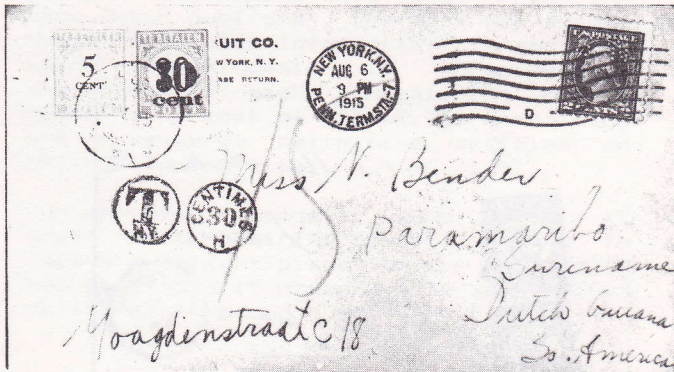 5
CENT
TE BETALEN
30
cent
UIT CO.
W YORK, N. Y.
RETURN.
NEW YORK, N.Y.
AUG 6
9 PM
1915
PENN. TERM. STA-7
D
T
N.Y.
CENTIMES
30
H
15
Miss N. Bender
Paramaribo
Suriname
Dutch Guiana
So. America
Maagdenstraat C 18